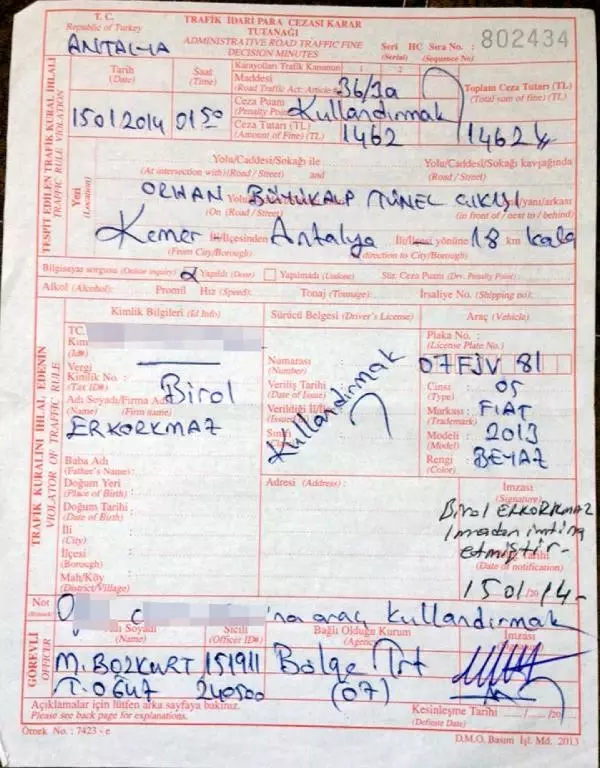 T. C.
Republic of Turkey
ANTALYA
TRAFİK İDARİ PARA CEZASI KARAR
TUTANAĞI
ADMINISTRATIVE ROAD TRAFFIC FINE
DECISION MINUTES
Seri HC Sıra No. : 802434
(Serial) (Sequence No)
TESPİT EDİLEN TRAFİK KURAL İHLALİ
TRAFFIC RULE VIOLATION
Tarih
(Date)
15012014
Saat
(Time)
01 50
Karayolları Trafik Kanunun
Maddesi
(Road Traffic Act: Article
36/3a
1 2
Ceza Puanı
(Penalty Point
Kullandırmak
Ceza Tutarı (TL)
(Amount of Fine) (TL)
1462
Toplam Ceza Tutarı (TL)
(Total sum of fine) (TL)
1462
Yeri
(Location)
Yolu/Caddesi/Sokağı ile Yolu/Caddesi/Sokağı kavşağında
(At intersection with)(Road / Street) and (Road / Street)
ORHAN BÜYÜKALP TÜNEL ÇIKIŞI yanı/arkası
(On (Road / Street) (in front of / next to / behind)
Kemer İl-İlçesinden Antalya İli/İlçesi yönüne 18 km kala
(From City/Borough) direction to City/Borough)
Bilgisayar sorgusu (Online inquiry) Yapıldı (Done) Yapılmadı (Undone) Sür. Ceza Puanı (Drv. Penalty Point):
Alkol (Alcohol): Promil Hız (Speed): Tonaj (Tonnage): İrsaliye No. (Shipping no):
TRAFİK KURALINI İHLAL EDENİN
VIOLATOR OF TRAFFIC RULE
Kimlik Bilgileri (Id Info)
TC.
Kim
(Id#)
Vergi
Kimlik No :
(Tax ID#)
Adı Soyadı/Firma Adı
(Name) (Firm name)
Birol
ERKORKMAZ
Baba Adı
(Father's Name) :
Doğum Yeri
(Place of Birth) :
Doğum Tarihi
(Date of Birth) :
İli
(City) :
İlçesi
(Borough) :
Mah/Köy
(District/Village) :
Sürücü Belgesi (Driver's License)
Numarası
(Number)
Veriliş Tarihi
(Date of Issue)
Verildiği İl/İl
(Issued
Sınıfı
Kullandırmak
Araç (Vehicle)
Plaka No. :
(License Plate No.)
07 FJV 81
Cinsi
(Type) : 05
Markası : FIAT
(Trademark)
Modeli : 2013
(Model)
Rengi : BEYAZ
(Color)
Adresi (Address) :
İmzası
(Signature)
Birol ERKORKMAZ
İmzadan imtina
etmiştir-
Tarihi
(Date of notification)
15 01 / 20 14-
Not
'na araç kullandırmak
GÖREVLİ
OFFICER
Adı Soyadı
(Name)
Sicili
(Officer ID#)
Bağlı Olduğu Kurum
(Agency
İmzası
M. BOZKURT 151911 Bölge Trf
240500 (07)
Açıklamalar için lütfen arka sayfaya bakınız.
Please see back page for explanations.
Kesinleşme Tarihi ..../..../20
(Definite Date)
Örnek No. : 7423 - e
D.M.O. Basım İşl. Md. 2013